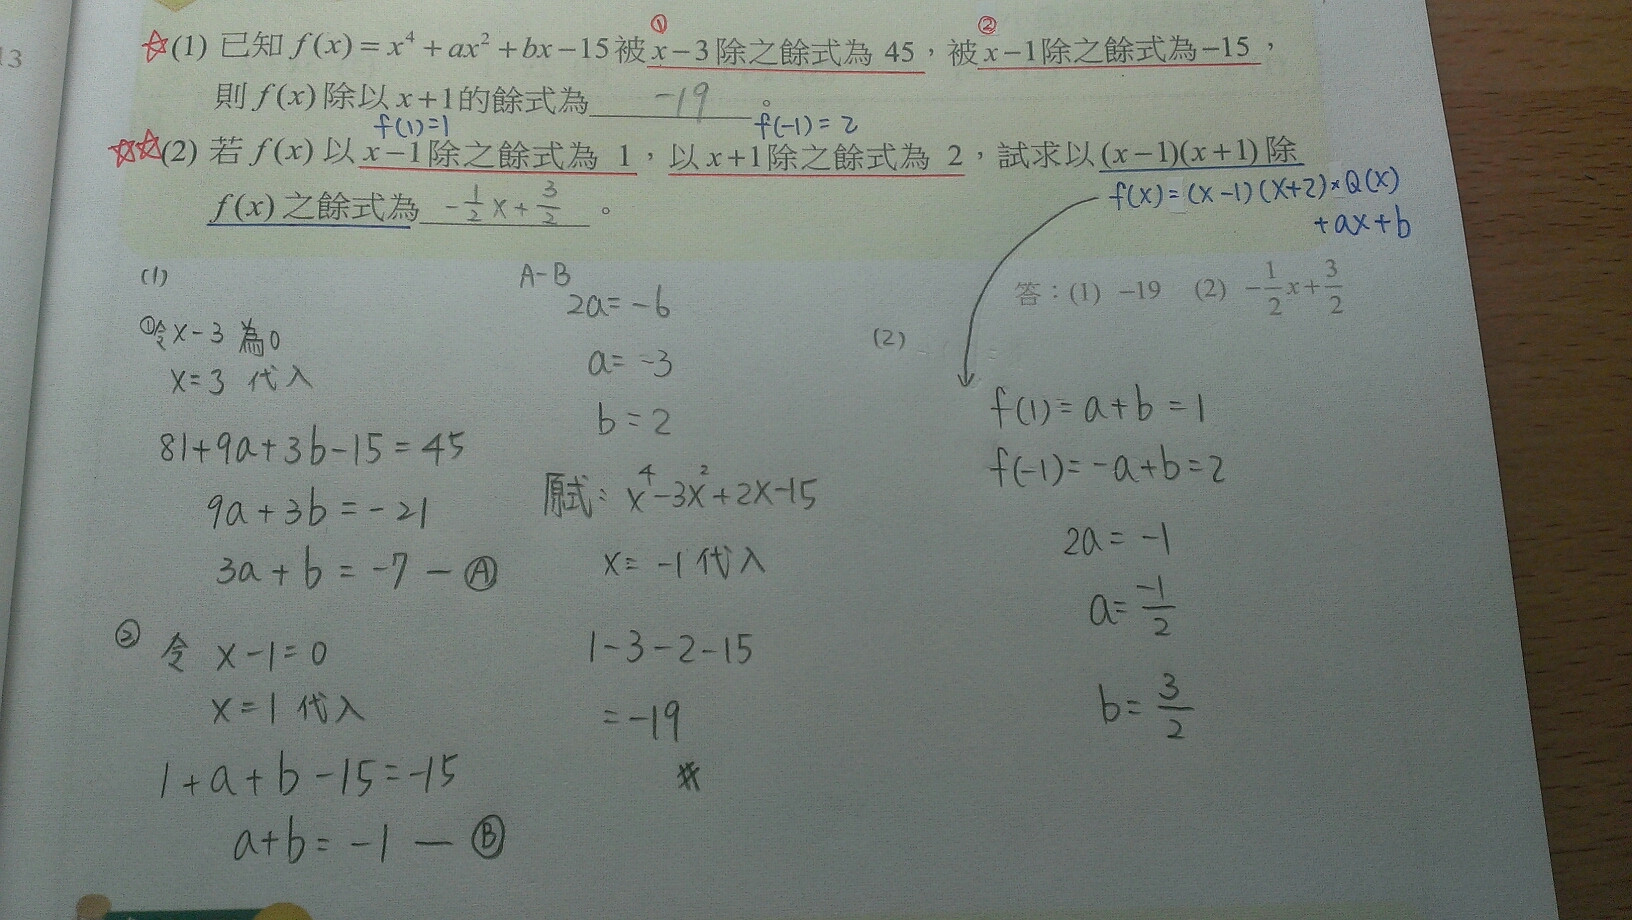 13
① ②
☆(1) 已知 f(x) = x⁴ + ax² + bx − 15 被 x − 3 除之餘式為 45,被 x − 1 除之餘式為 −15,
則 f(x) 除以 x + 1 的餘式為 -19 。
f(1)=1 f(-1)=2
☆☆(2) 若 f(x) 以 x − 1 除之餘式為 1,以 x + 1 除之餘式為 2,試求以 (x − 1)(x + 1) 除
f(x) 之餘式為 -1/2 x + 3/2 。
f(x)=(x-1)(x+2)×Q(x)
+ax+b
答:(1) −19 (2) −1/2 x + 3/2
(1)
①令x-3 為0
x=3 代入
81+9a+3b-15=45
9a+3b=-21
3a+b=-7 — Ⓐ
② 令 x-1=0
x=1 代入
1+a+b-15=-15
a+b=-1 — Ⓑ
A-B
2a=-6
a=-3
b=2
原式: x⁴-3x²+2x-15
x=-1 代入
1-3-2-15
=-19
#
(2)
f(1)=a+b=1
f(-1)=-a+b=2
2a=-1
a=-1/2
b=3/2